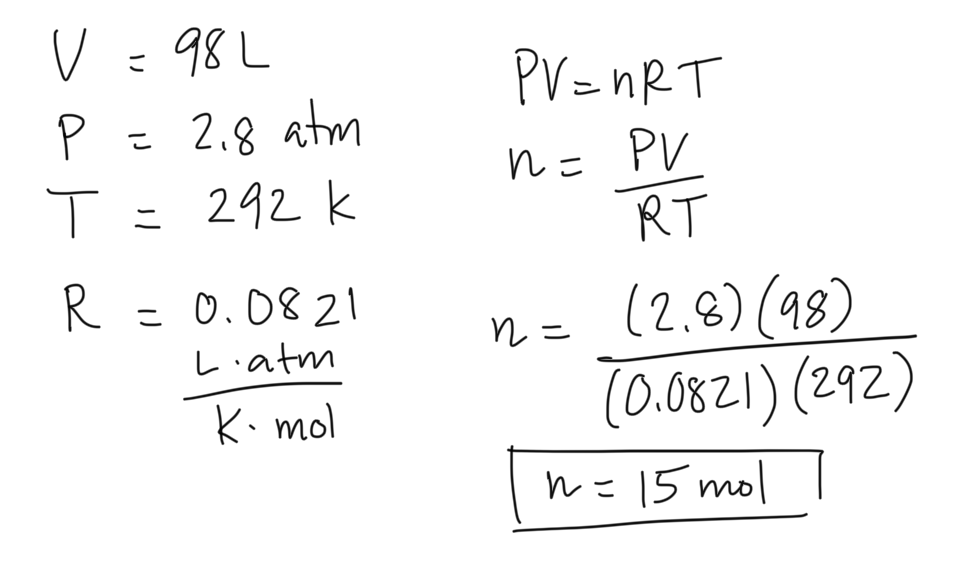 V = 98 L
P = 2.8 atm
T = 292 k
R = 0.0821
L·atm
K·mol
PV = nRT
n = PV
RT
n = (2.8)(98)
(0.0821)(292)
n = 15 mol